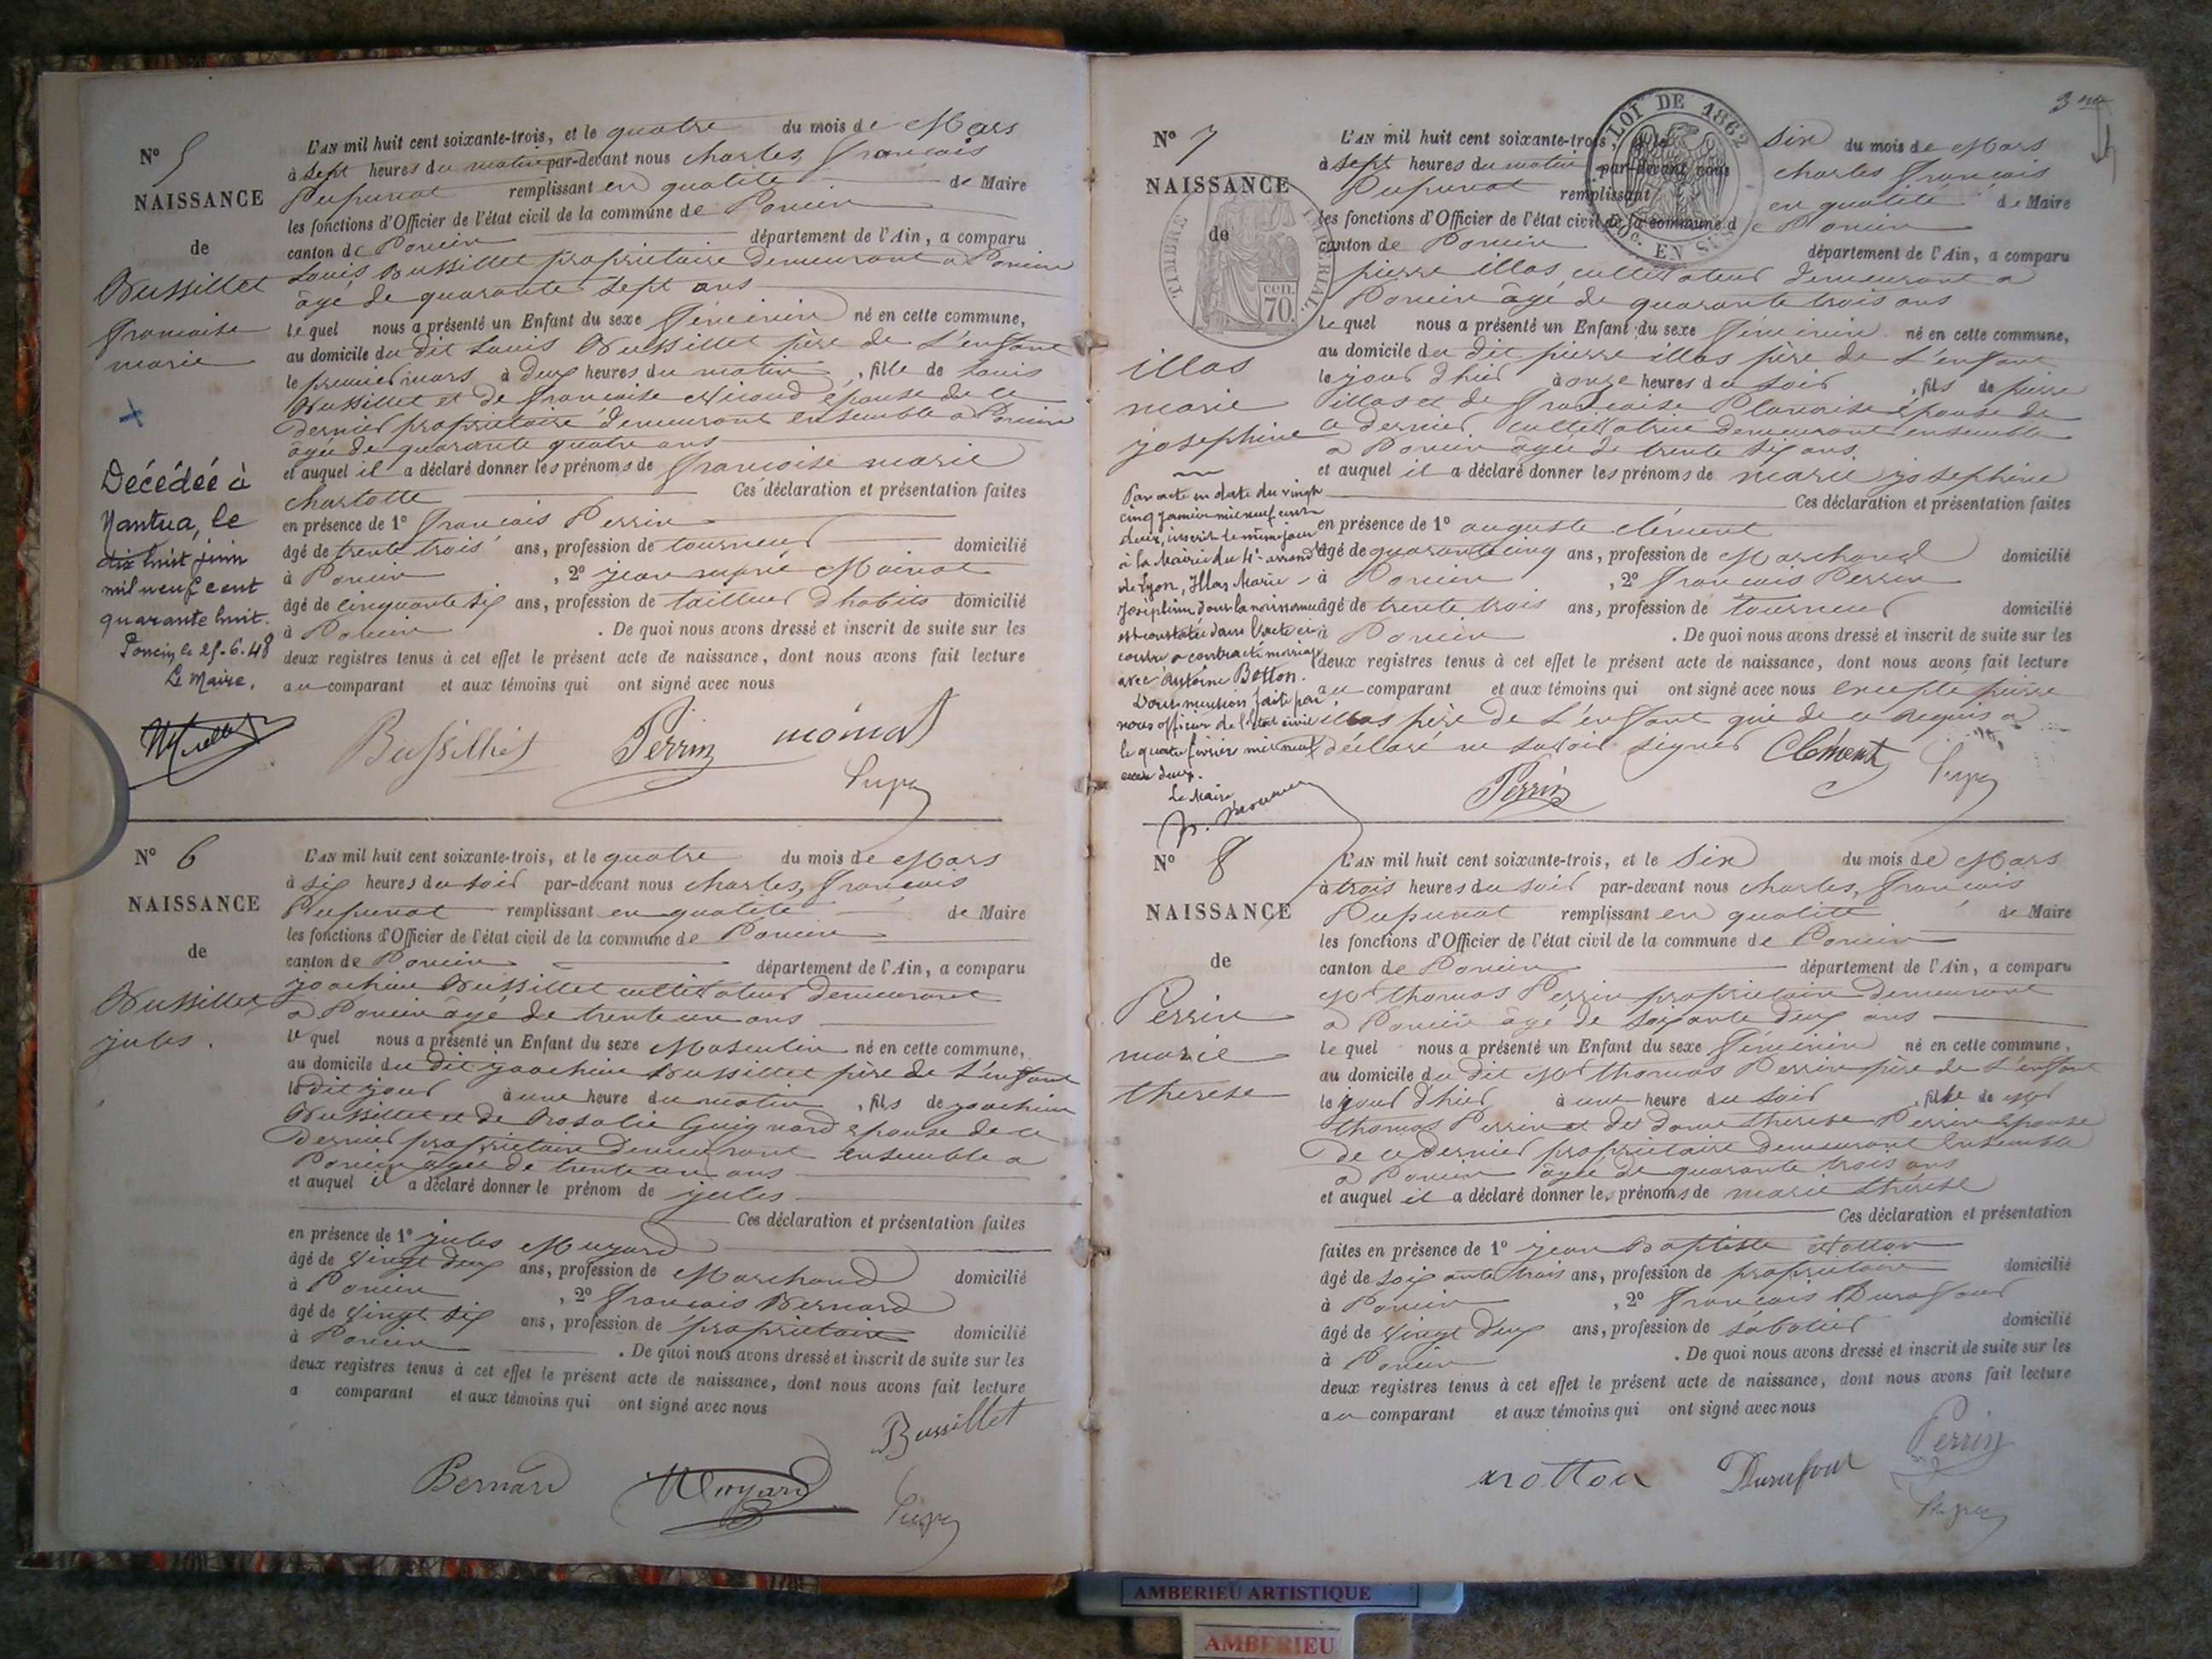 N° 5
NAISSANCE
de
Bussillet
francoise
marie
Décédée à
Nantua, le
dix huit juin
mil neuf cent
quarante huit.
Poncin le 25-6-48
Le Maire,
L'AN mil huit cent soixante-trois, et le quatre du mois de Mars
à sept heures du matin par-devant nous charles, francois
Pupunat remplissant en qualité de Maire
les fonctions d'Officier de l'état civil de la commune de Poncin
canton de Poncin département de l'Ain, a comparu
Louis Bussillet propriétaire demeurant a Poncin
âgé de quarante sept ans
lequel nous a présenté un Enfant du sexe féminin né en cette commune,
au domicile du dit Louis Bussillet père de l'enfant
le premier mars à deux heures du matin, fille de Louis
Bussillet et de francoise Nicoud épouse de ce
dernier propriétaire demeurant ensemble a Poncin
âgée de quarante quatre ans
et auquel il a déclaré donner les prénoms de francoise marie
charlotte Ces déclaration et présentation faites
en présence de 1° francois Perrin
âgé de trente trois ans, profession de tourneur domicilié
à Poncin, 2° jean marie Moinat
âgé de cinquante six ans, profession de tailleur d'habits domicilié
à Poncin. De quoi nous avons dressé et inscrit de suite sur les
deux registres tenus à cet effet le présent acte de naissance, dont nous avons fait lecture
au comparant et aux témoins qui ont signé avec nous
Bussillet Perrin moinat
Pupu
N° 6
NAISSANCE
de
Bussillet
jules.
L'AN mil huit cent soixante-trois, et le quatre du mois de Mars
à six heures du soir par-devant nous charles, francois
Pupunat remplissant en qualité de Maire
les fonctions d'Officier de l'état civil de la commune de Poncin
canton de Poncin département de l'Ain, a comparu
joachim Bussillet cultivateur demeurant
a Poncin âgé de trente un ans
lequel nous a présenté un Enfant du sexe Masculin né en cette commune,
au domicile du dit joachim Bussillet père de l'enfant
le dit jour à une heure du matin, fils de joachim
Bussillet et de Rosalie Guignard épouse de ce
dernier propriétaire demeurant ensemble a
Poncin âgée de trente un ans
et auquel il a déclaré donner le prénom de jules
Ces déclaration et présentation faites
en présence de 1° jules Muyard
âgé de vingt deux ans, profession de Marchand domicilié
à Poncin, 2° francois Bernard
âgé de vingt six ans, profession de propriétaire domicilié
à Poncin. De quoi nous avons dressé et inscrit de suite sur les
deux registres tenus à cet effet le présent acte de naissance, dont nous avons fait lecture
a comparant et aux témoins qui ont signé avec nous
Bussillet
Bernard Muyard
Pupu
3
N° 7
NAISSANCE
de
TIMBRE IMPERIAL
cen. 70.
LOI DE 1862
EN SUS
illas
marie
josephine
Par acte en date du vingt
cinq janvier mil neuf cent
deux, inscrit le même jour
à la Mairie du 4e arrond
de Lyon, Illas Marie
Joséphine dont la naissance
est constatée dans l'acte ci
contre a contracté mariage
avec Antoine Botton.
Dont mention faite par
nous officier de l'état civil
le quatre février mil neuf
cent deux.
Le Maire
L'AN mil huit cent soixante-trois, et le six du mois de Mars
à sept heures du matin par-devant nous charles francois
Pupunat remplissant en qualité de Maire
les fonctions d'Officier de l'état civil de la commune de Poncin
canton de Poncin département de l'Ain, a comparu
pierre illas cultivateur demeurant a
Poncin âgé de quarante trois ans
lequel nous a présenté un Enfant du sexe féminin né en cette commune,
au domicile du dit pierre illas père de l'enfant
le jour d'hier à onze heures du soir, fils de pierre
illas et de francoise Plancoise épouse de
ce dernier cultivatrice demeurant ensemble
a Poncin âgée de trente six ans
et auquel il a déclaré donner les prénoms de marie josephine
Ces déclaration et présentation faites
en présence de 1° auguste clément
âgé de quarante cinq ans, profession de Marchand domicilié
à Poncin, 2° francois Perrin
âgé de trente trois ans, profession de tourneur domicilié
à Poncin. De quoi nous avons dressé et inscrit de suite sur les
deux registres tenus à cet effet le présent acte de naissance, dont nous avons fait lecture
au comparant et aux témoins qui ont signé avec nous excepté pierre
illas père de l'enfant qui de ce requis a
déclaré ne savoir signer Clément Pupu
Perrin
N° 8
NAISSANCE
de
Perrin
marie
therese
L'AN mil huit cent soixante-trois, et le six du mois de Mars
à trois heures du soir par-devant nous charles, francois
Pupunat remplissant en qualité de Maire
les fonctions d'Officier de l'état civil de la commune de Poncin
canton de Poncin département de l'Ain, a comparu
Mr thomas Perrin propriétaire demeurant
a Poncin âgé de soixante deux ans
lequel nous a présenté un Enfant du sexe féminin né en cette commune,
au domicile du dit Mr thomas Perrin père de l'enfant
le jour d'hier à une heure du soir, fille de Mr
thomas Perrin et de dame therese Perrin épouse
de ce dernier propriétaire demeurant ensemble
a Poncin âgée de quarante trois ans
et auquel il a déclaré donner les prénoms de marie therese
Ces déclaration et présentation
faites en présence de 1° jean Baptiste Notton
âgé de soixante trois ans, profession de propriétaire domicilié
à Poncin, 2° francois Durafour
âgé de vingt deux ans, profession de sabotier domicilié
à Poncin. De quoi nous avons dressé et inscrit de suite sur les
deux registres tenus à cet effet le présent acte de naissance, dont nous avons fait lecture
au comparant et aux témoins qui ont signé avec nous
Perrin
notton Durafour
Pupu
AMBERIEU ARTISTIQUE
AMBERIEU